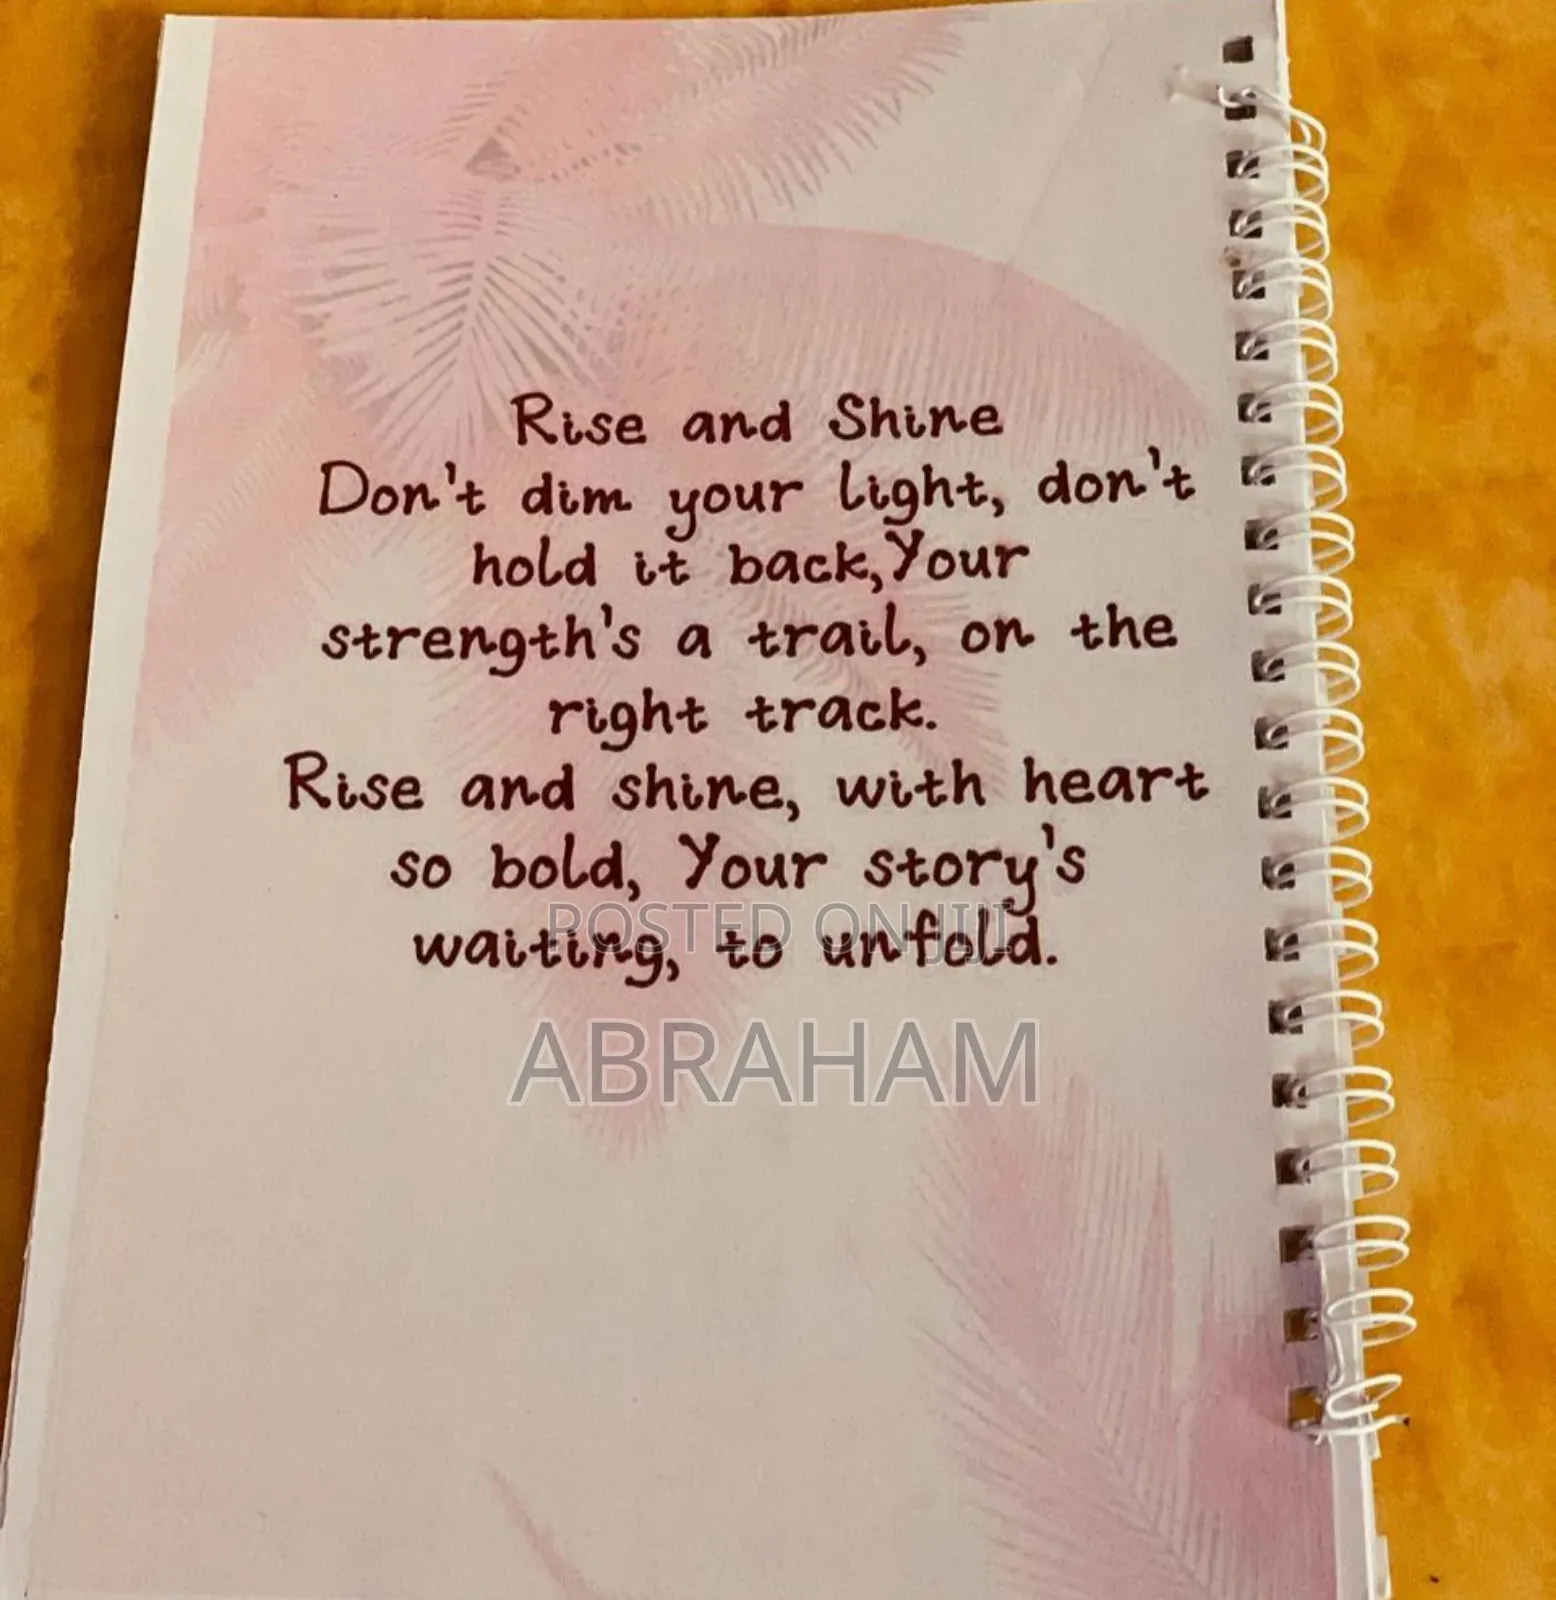 Rise and Shine
Don't dim your light, don't
hold it back,Your
strength's a trail, on the
right track.
Rise and shine, with heart
so bold, Your story's
waiting, to unfold.
POSTED ON JIJI
ABRAHAM